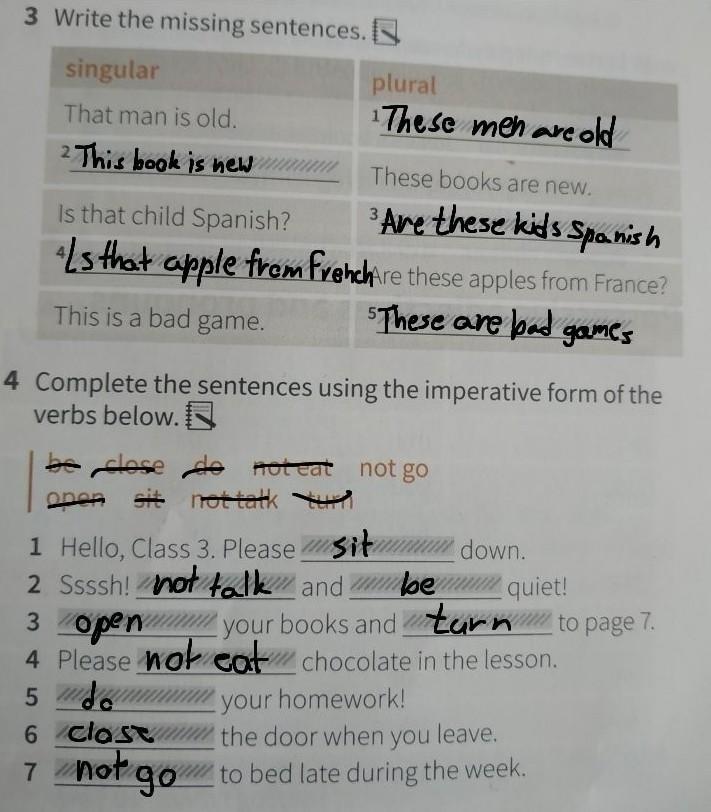 3 Write the missing sentences.
singular plural
That man is old. 1 These men are old
2 This book is new These books are new.
Is that child Spanish? 3 Are these kids Spanish
4 Is that apple from French Are these apples from France?
This is a bad game. 5 These are bad games
4 Complete the sentences using the imperative form of the
verbs below.
be close do not eat not go
open sit not talk turn
1 Hello, Class 3. Please sit down.
2 Ssssh! not talk and be quiet!
3 open your books and turn to page 7.
4 Please not eat chocolate in the lesson.
5 do your homework!
6 close the door when you leave.
7 not go to bed late during the week.